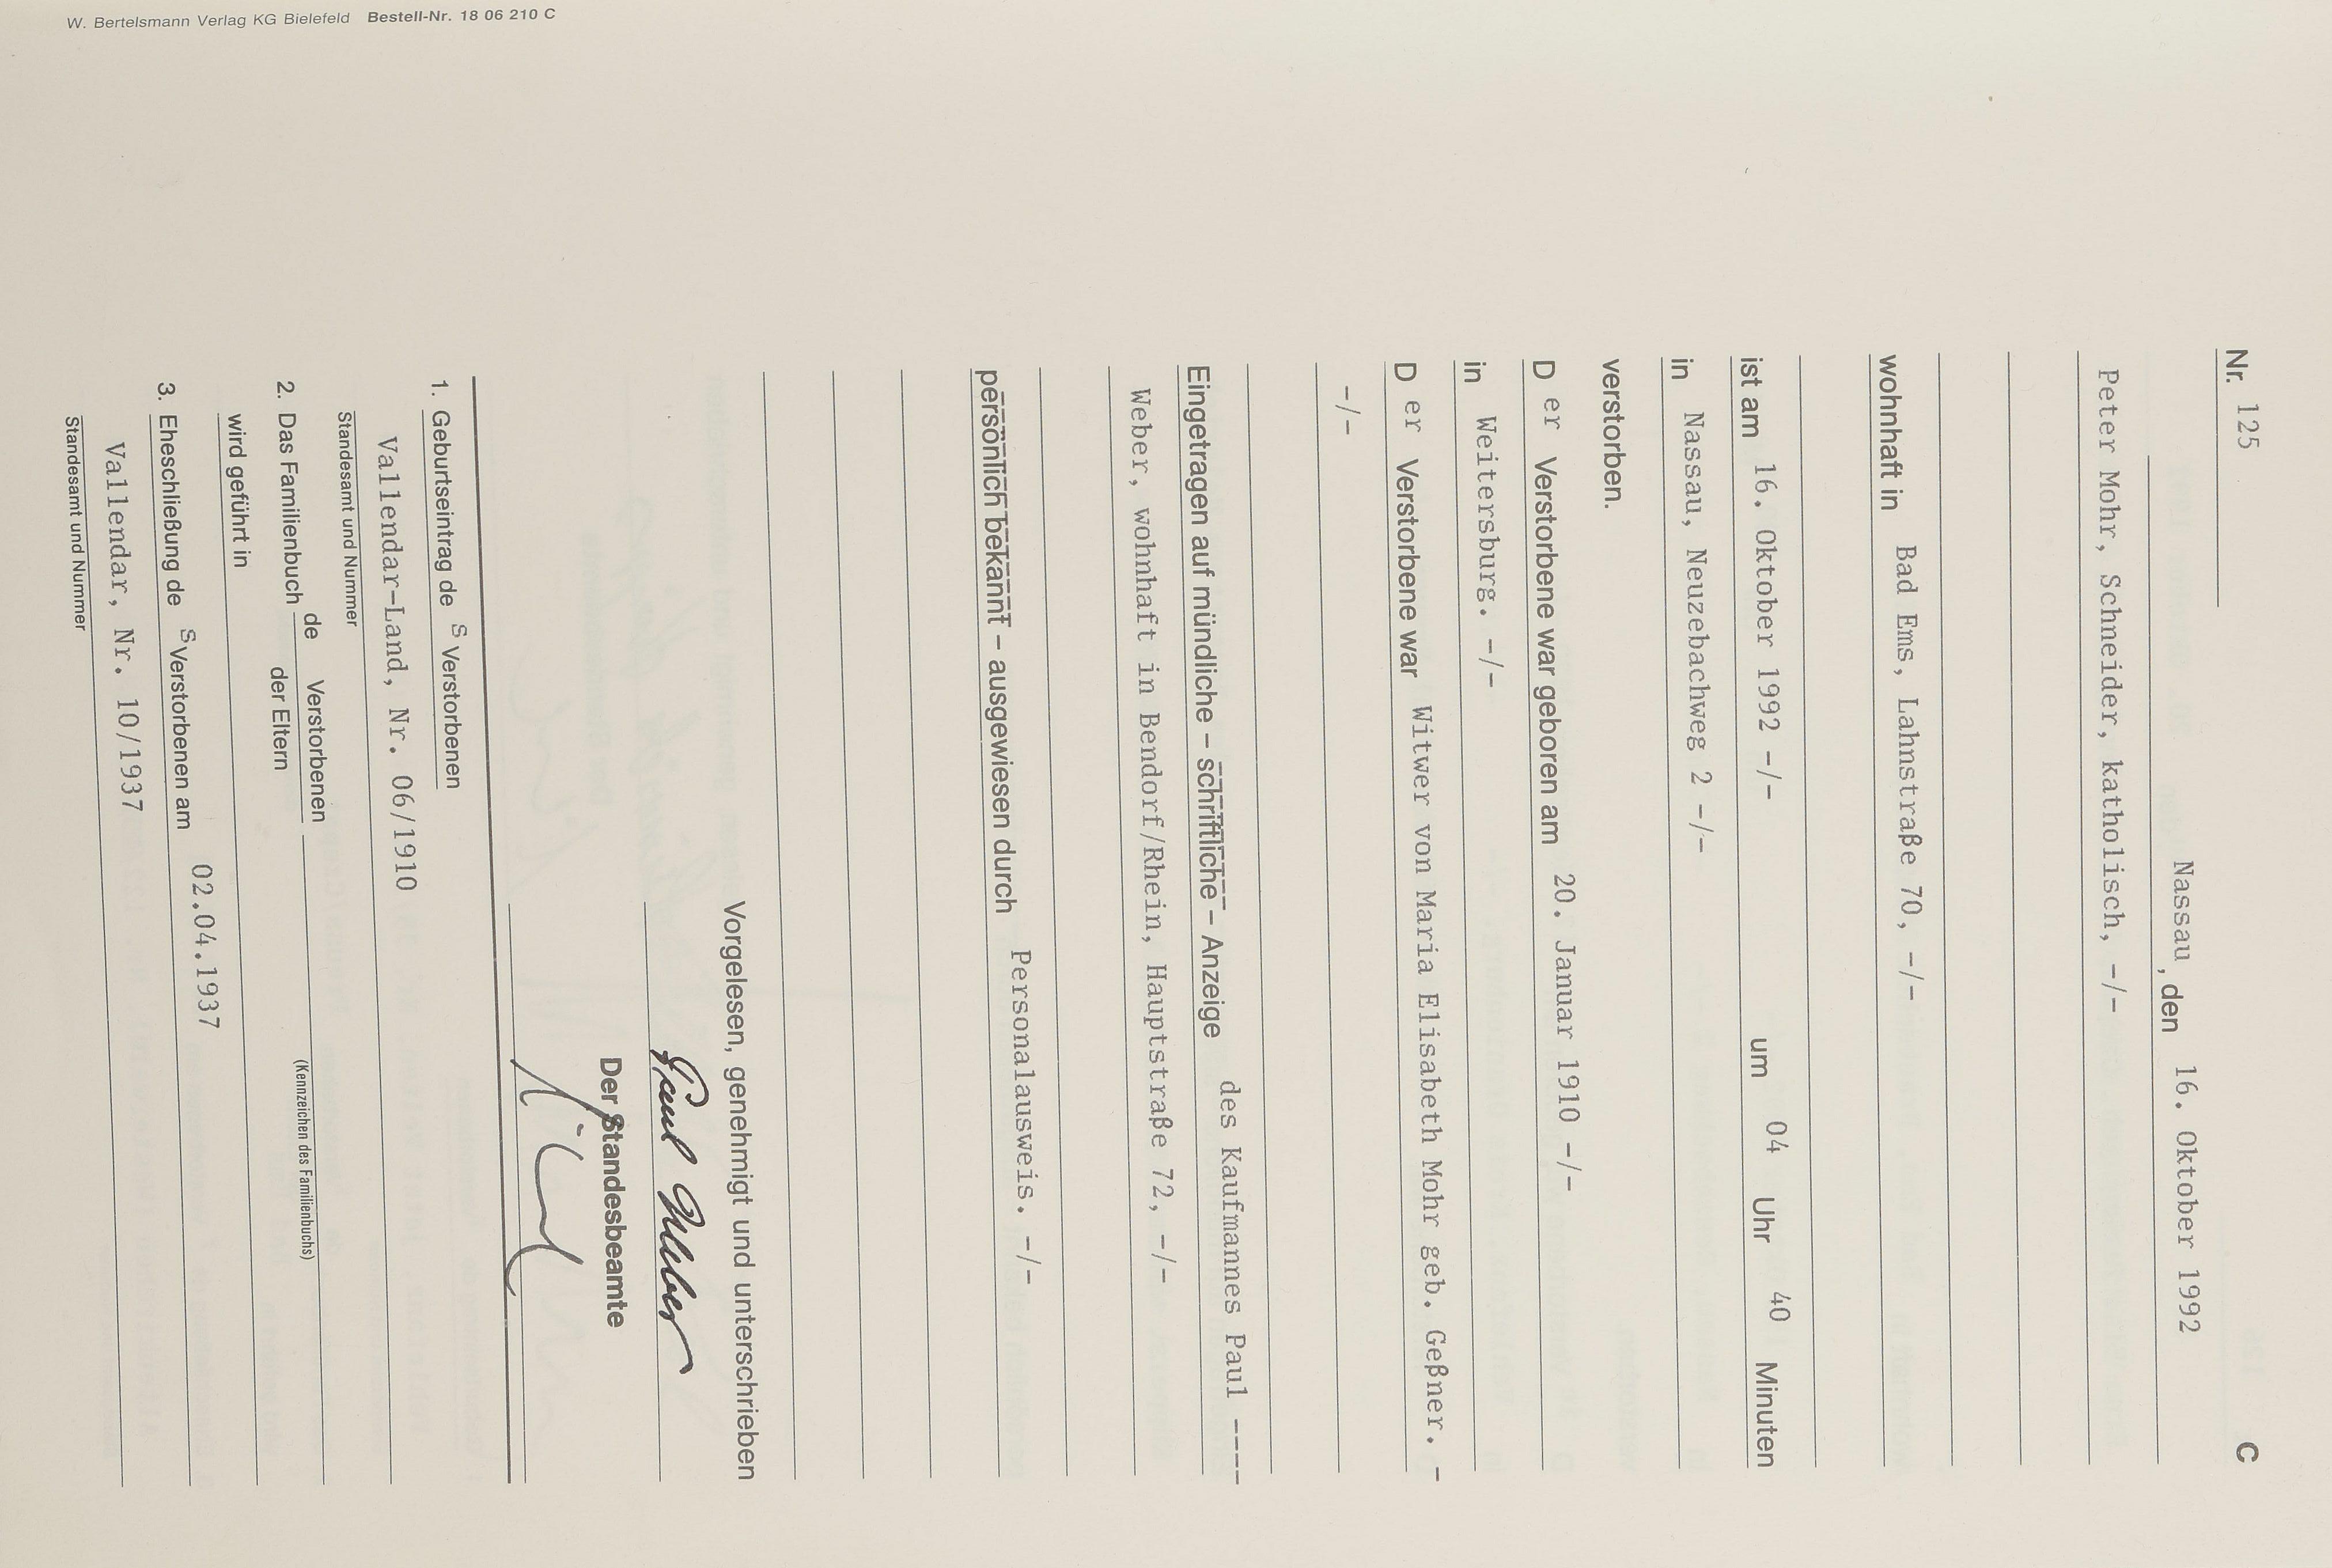 Nr. 125 C
Nassau, den 16. Oktober 1992
Peter Mohr, Schneider, katholisch, -/-
wohnhaft in Bad Ems, Lahnstraße 70, -/-
ist am 16. Oktober 1992 -/- um 04 Uhr 40 Minuten
in Nassau, Neuzebachweg 2 -/-
verstorben.
D er Verstorbene war geboren am 20. Januar 1910 -/-
in Weitersburg. -/-
D er Verstorbene war Witwer von Maria Elisabeth Mohr geb. Geßner. -
-/-
Eingetragen auf mündliche – schriftliche – Anzeige des Kaufmannes Paul ----
Weber, wohnhaft in Bendorf/Rhein, Hauptstraße 72, -/-
persönlich bekannt – ausgewiesen durch Personalausweis. -/-
Vorgelesen, genehmigt und unterschrieben
Paul Weber
Der Standesbeamte
1. Geburtseintrag de s Verstorbenen
Vallendar-Land, Nr. 06/1910
Standesamt und Nummer
2. Das Familienbuch de Verstorbenen
der Eltern
(Kennzeichen des Familienbuchs)
wird geführt in
3. Eheschließung de s Verstorbenen am 02.04.1937
Vallendar, Nr. 10/1937
Standesamt und Nummer
W. Bertelsmann Verlag KG Bielefeld Bestell-Nr. 18 06 210 C